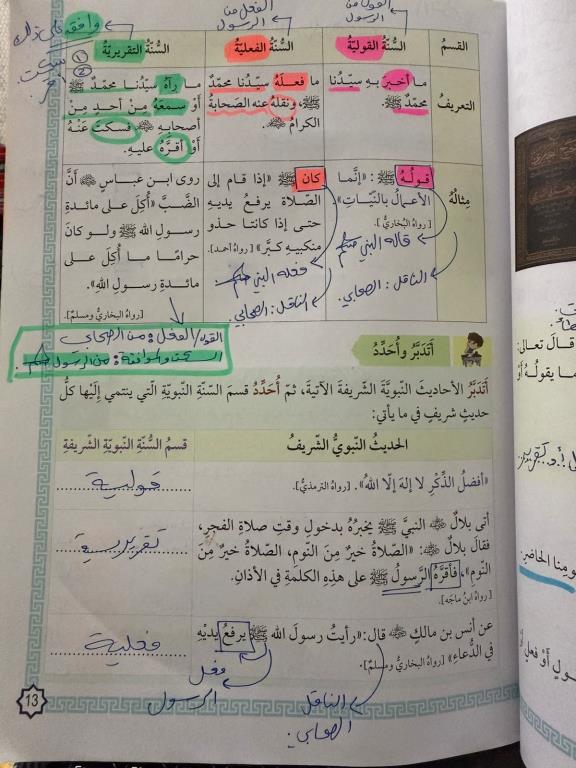 القول من
الرسول
الفعل من
الرسول
وافقه على ذلك
سكت
① ②
القسمُ
السُّنَّةُ القوليّةُ
السُّنَّةُ الفعليّةُ
السُّنَّةُ التقريريّةُ
التعريفُ
ما أخبرَ بهِ سيِّدُنا
محمّدٌ ﷺ.
ما فعلَهُ سيّدُنا محمّدٌ
ﷺ، ونقلهُ عنه الصّحابةُ
الكرامُ
ما رآهُ سيّدُنا محمّدٌ ﷺ
أوْ سمعَهُ مِنْ أحدٍ مِنْ
أصحابِهِ، فسكتَ عنْهُ
أوْ أقرَّهُ عليهِ.
مِثالُهُ
قولُهُ ﷺ: «إنَّما
الأعمالُ بالنّيّاتِ»
[رواهُ البُخاريُّ].
قاله النبي ﷺ
الناقل: الصحابي
كان ﷺ «إذا قام إلى
الصّلاة يرفعُ يديهِ
حتى إذا كانتا حذو
منكبيهِ كبَّر» [رواه أحمد].
فعله النبي ﷺ
الناقل: الصحابي.
روى ابن عباسٍ أنَّ
الضّبَّ «أُكِلَ على مائدةِ
رسولِ اللهِ ﷺ ولو كانَ
حرامًا ما أُكِلَ على
مائدةِ رسولِ اللهِ».
[رواهُ البخاريُّ ومسلمٌ].
القول/الفعل: من الصحابي
السكوت والموافقة: من الرسول ﷺ.
أتدَبَّرُ وأُحَدِّدُ
أتدَبَّرُ الأحاديثَ النبويَّةَ الشّريفةَ الآتيةَ، ثمّ أُحدِّدُ قسمَ السّنّةِ النبويّةِ الّتي ينتمي إليْها كلُّ
حديثٍ شريفٍ في ما يأتي:
الحديثُ النّبويُّ الشّريفُ
قسمُ السُّنّةِ النّبويّةِ الشّريفةِ
«أفضلُ الذِّكْرِ لا إلهَ إلّا اللهُ». [رواهُ الترمذيُّ].
قولية
أتى بلالٌ النبيَّ ﷺ يخبرُهُ بدخولِ وقتِ صلاةِ الفجرِ،
فقالَ بلالٌ: «الصّلاةُ خيرٌ مِنَ النّومِ، الصّلاةُ خيرٌ مِنَ
النّومِ»، فأقرَّهُ الرَّسولُ ﷺ على هذِهِ الكلمةِ في الأذانِ.
[رواهُ ابنُ ماجَه].
تقريرية
عن أنسِ بن مالكٍ قال: «رأيتُ رسولَ اللهِ ﷺ يرفعُ يديْهِ
في الدُّعاءِ» [رواهُ البخاريُّ ومسلمٌ].
فعلية
فعل
الرسول
الناقل
الصحابي.
13
قالَ تعالى:
ومِنا الحاضرِ